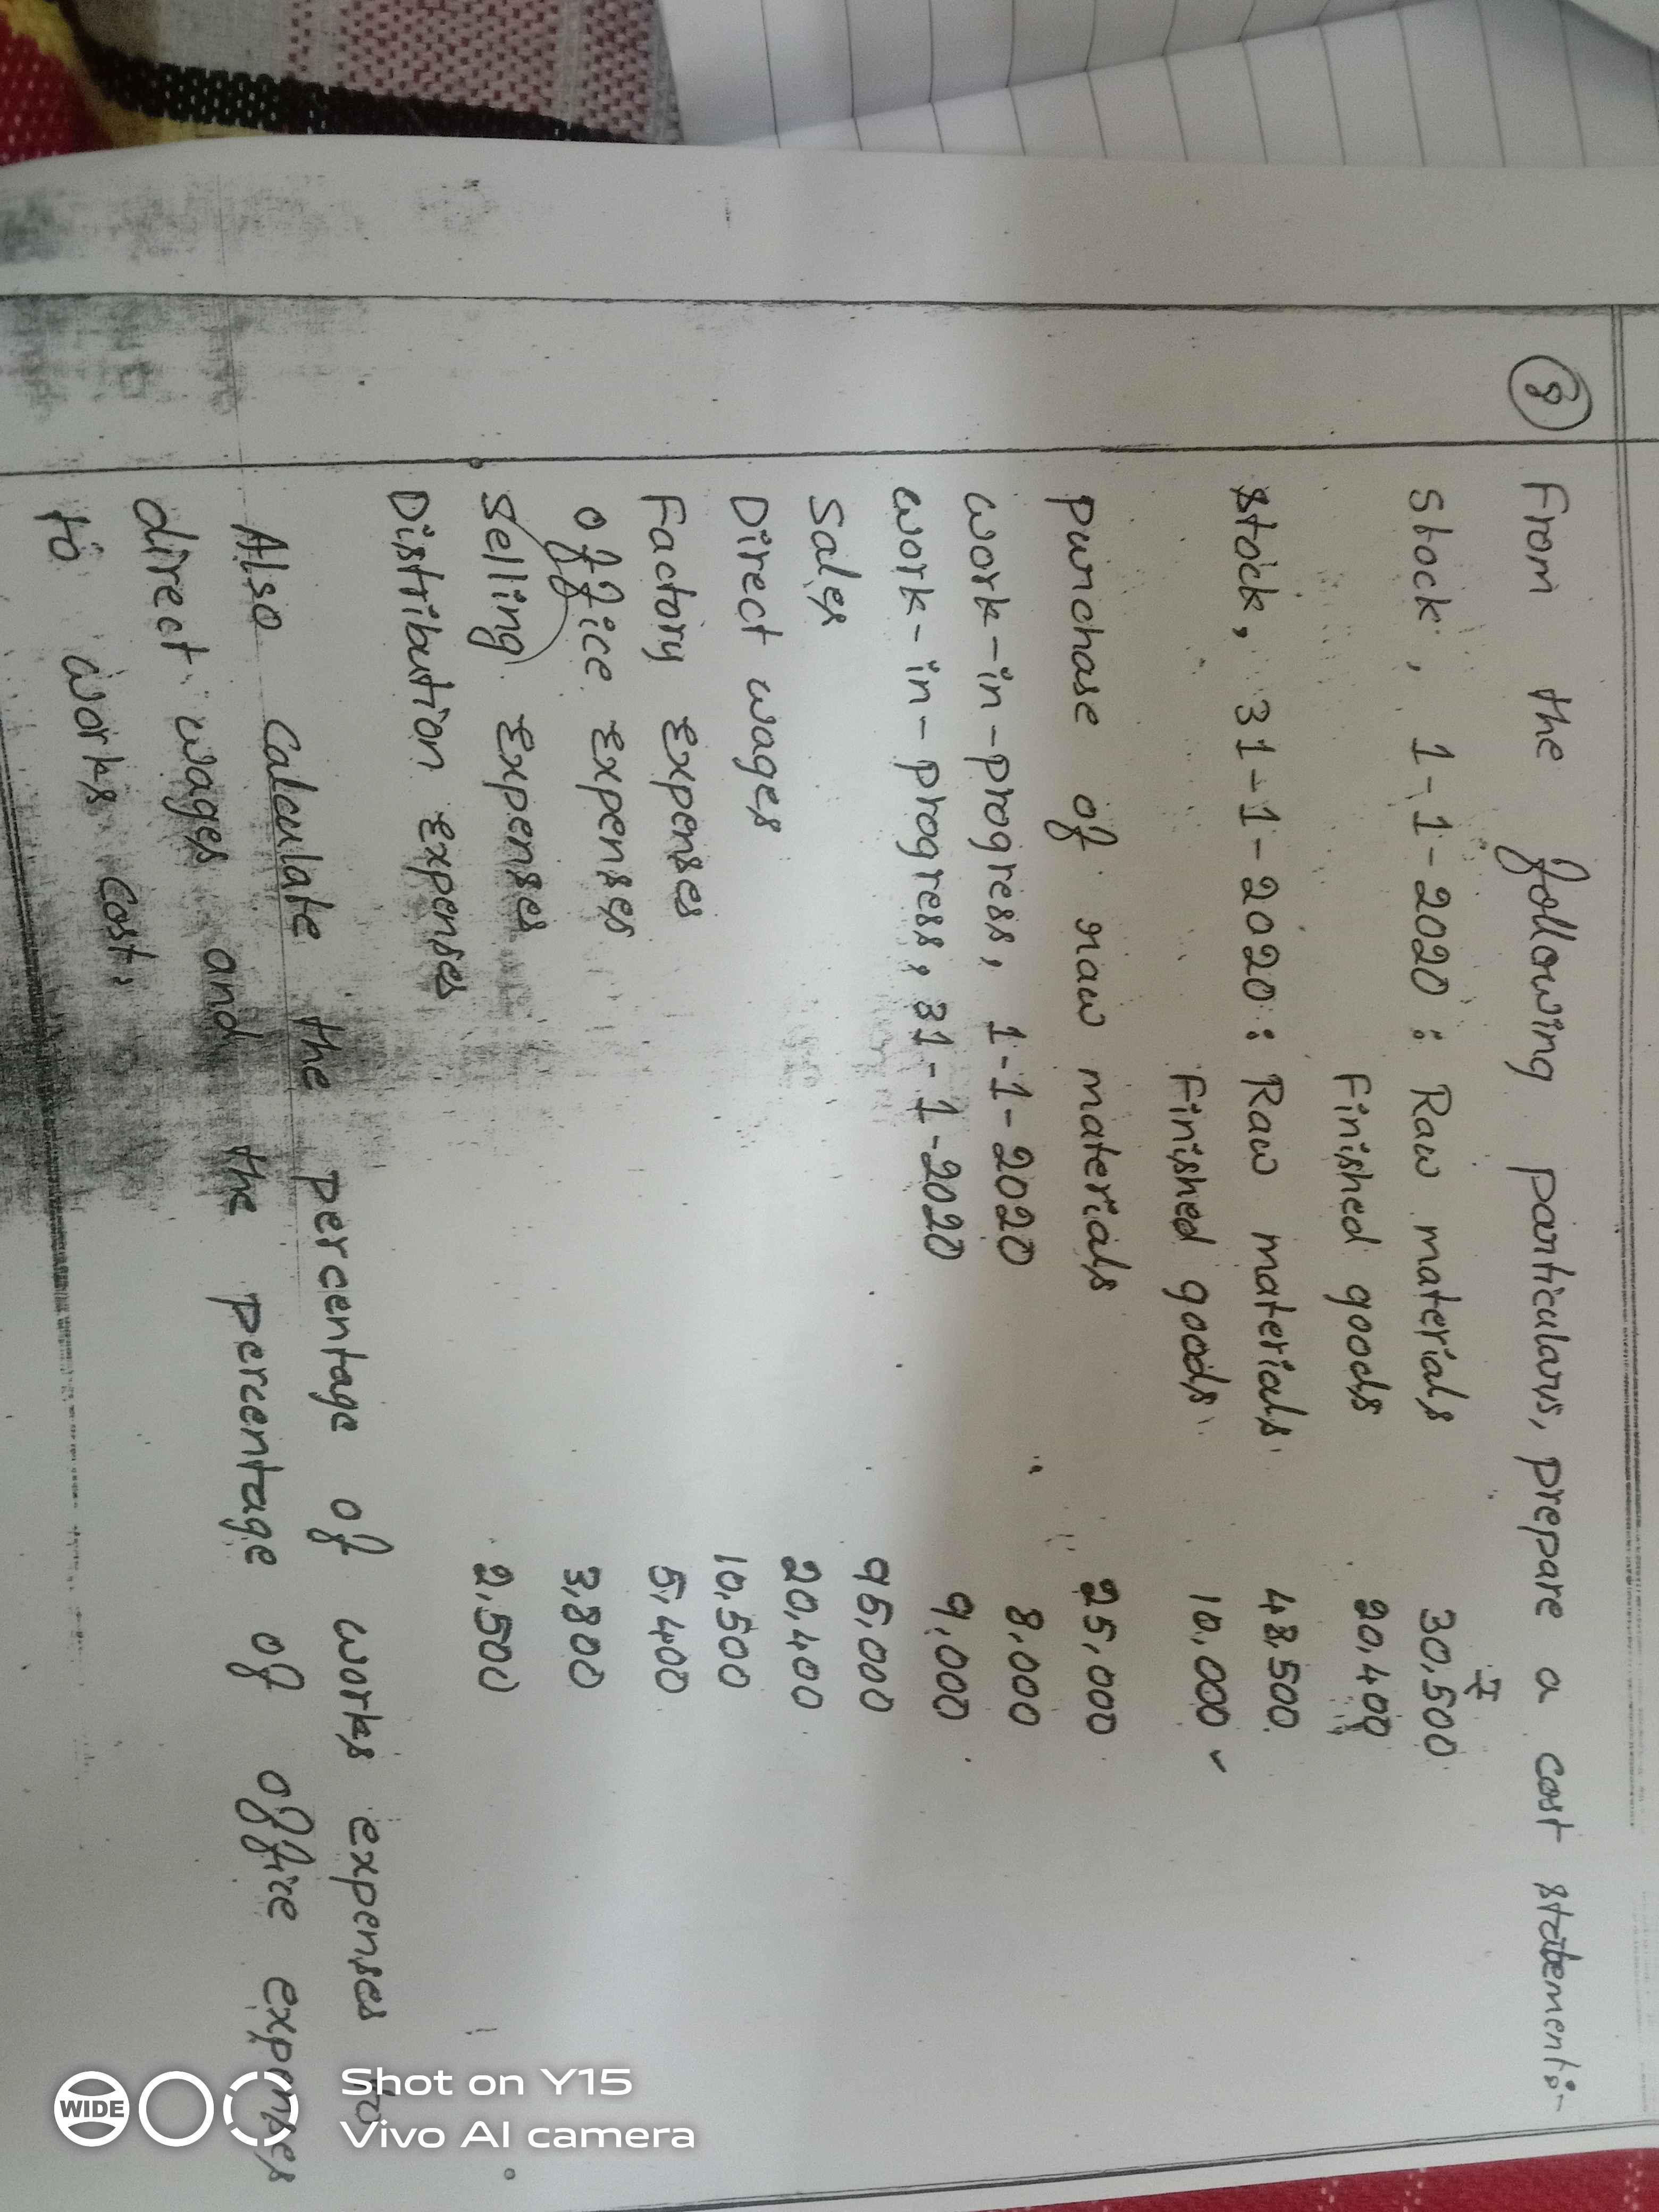 8 From the following particulars, prepare a cost statement:-
₹
Stock, 1-1-2020: Raw materials 30,500
Finished goods 20,400
Stock, 31-1-2020: Raw materials 48,500
Finished goods 10,000 ✓
Purchase of raw materials 25,000
work-in-progress, 1-1-2020 8,000
work-in-progress, 31-1-2020 9,000
Sales 95,000
Direct wages 20,400
Factory Expenses 10,500
Office Expenses 5,400
Selling Expenses 3,800
Distribution Expenses 2,500
Also Calculate the percentage of works expenses to
direct wages and the percentage of office expenses
to works cost.
WIDE
Shot on Y15
Vivo AI camera